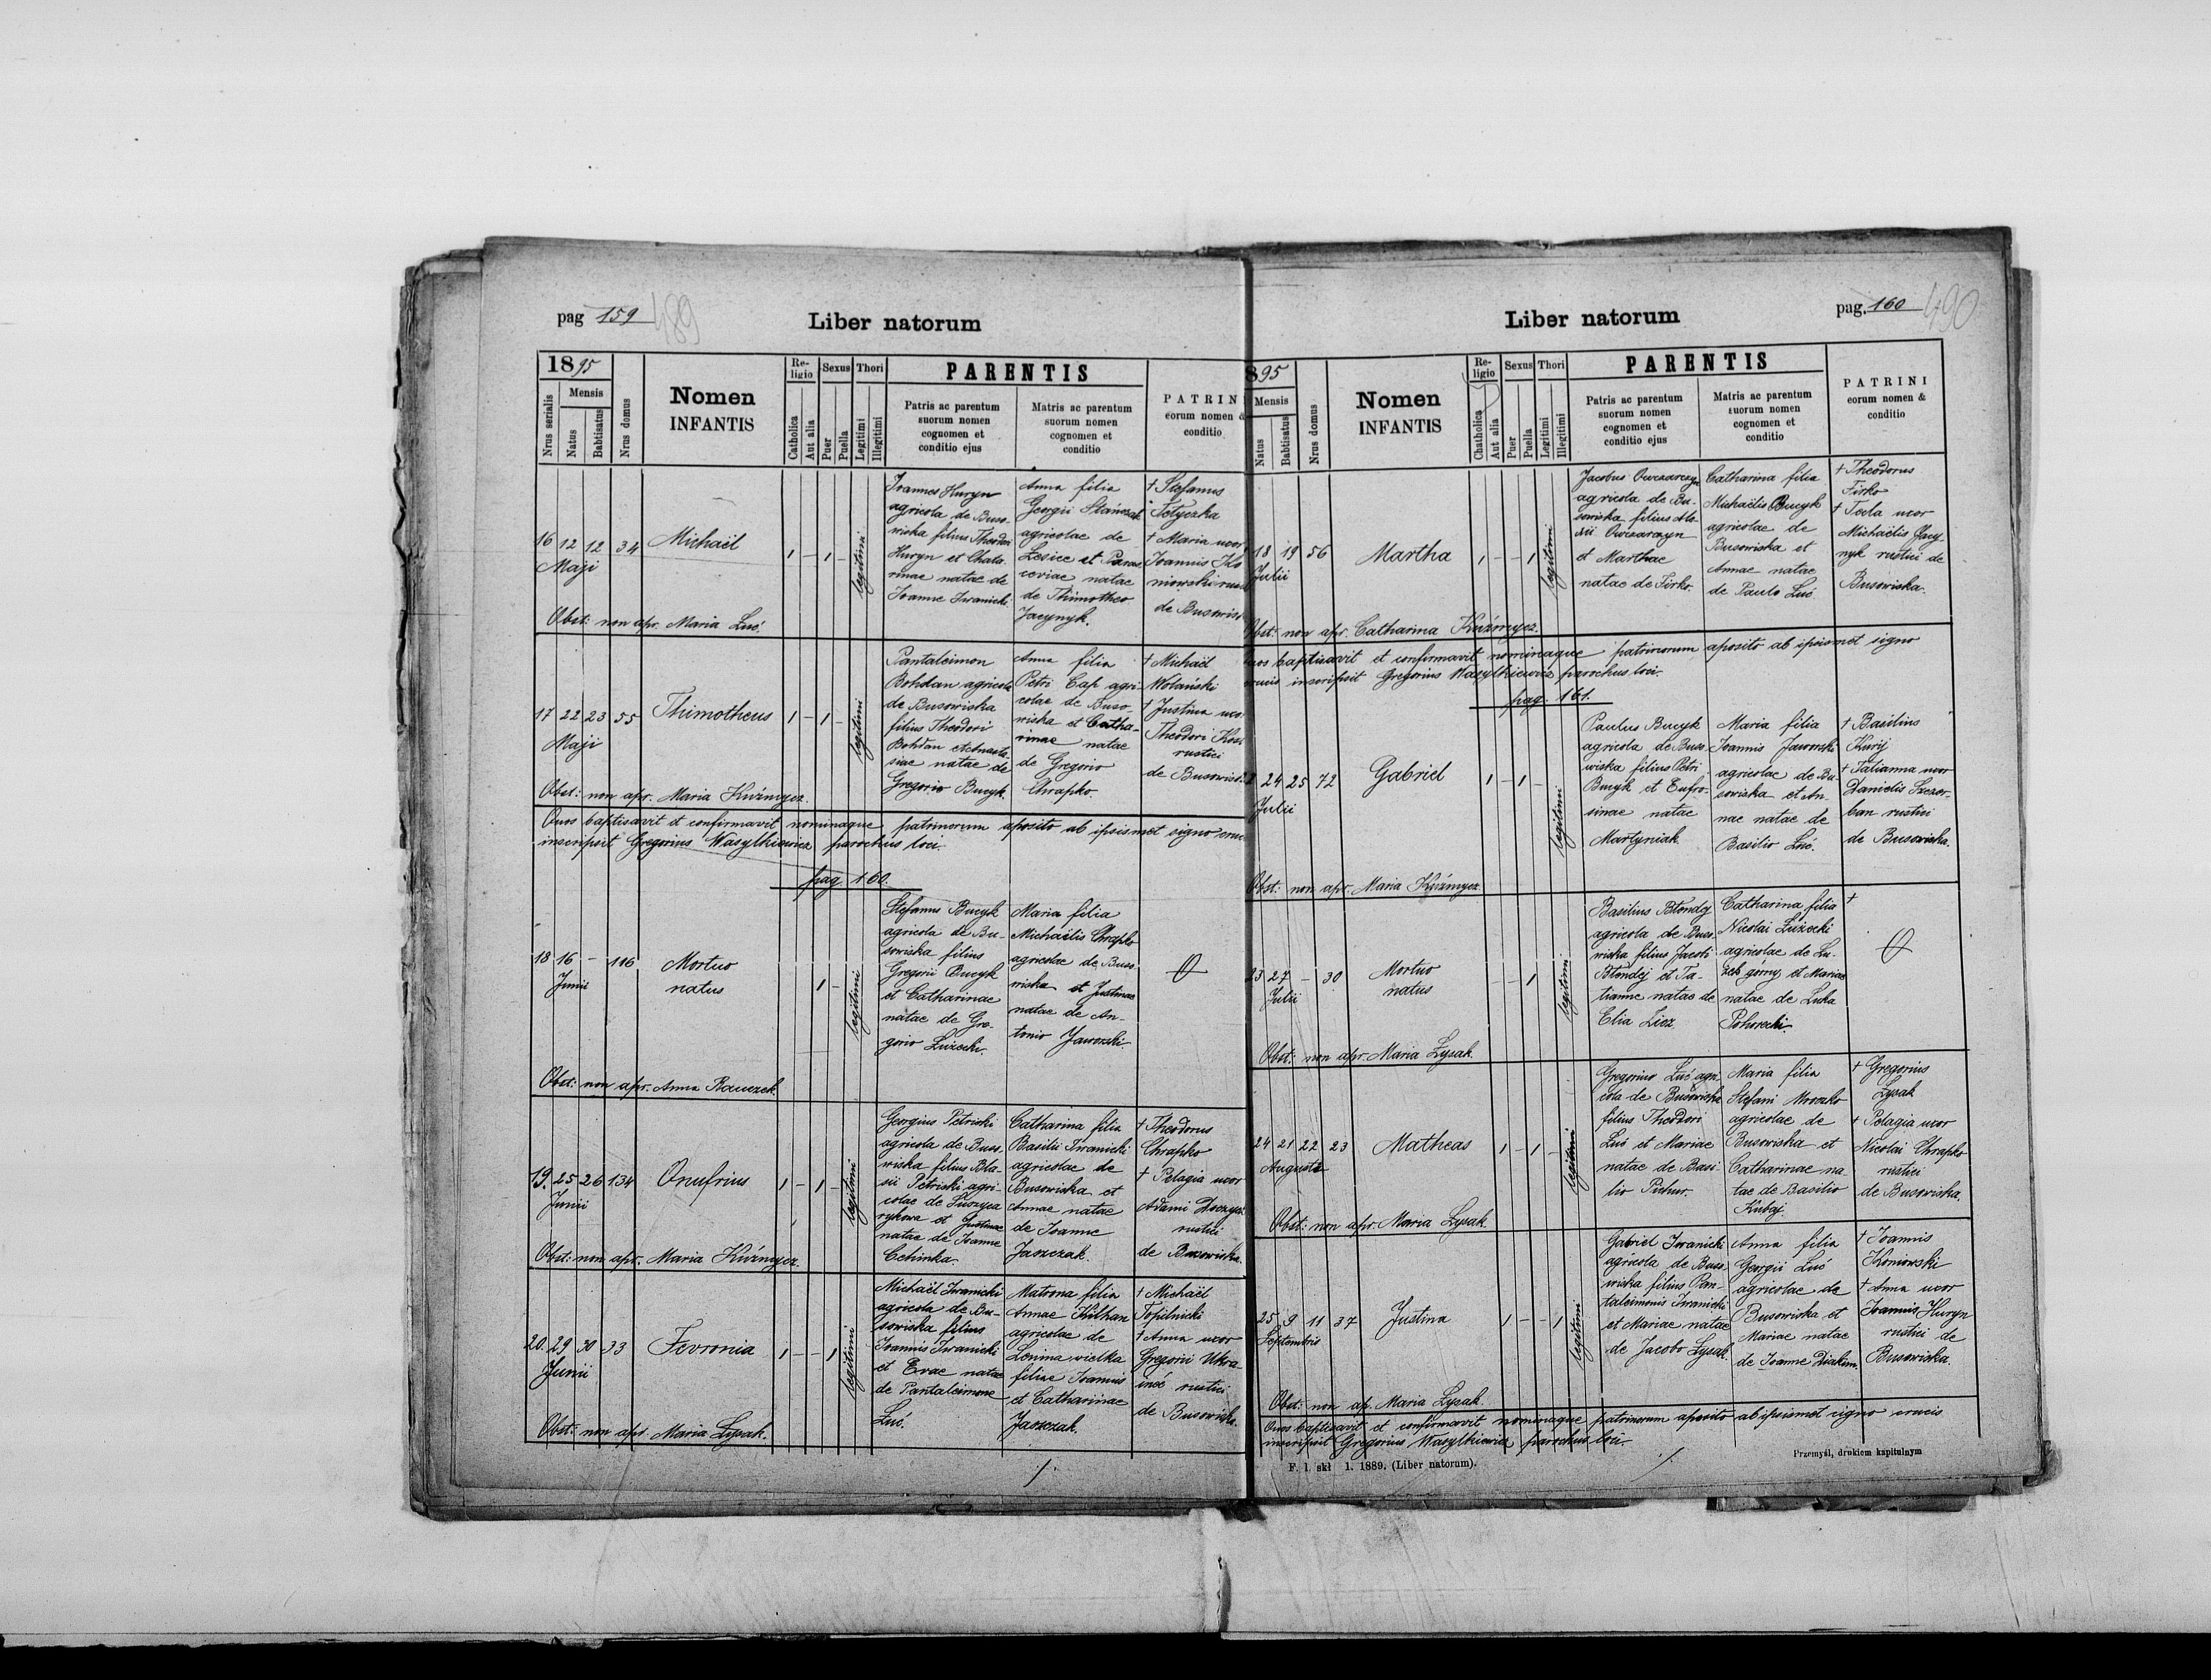 pag 159 489
Liber natorum
1895
Mensis
Nrus serialis
Natus
Babtisatus
Nrus domus
Nomen
INFANTIS
Re-
ligio
Catholica
Aut alia
Sexus
Puer
Puella
Thori
Legitimi
Illegitimi
PARENTIS
Patris ac parentum
suorum nomen
cognomen et
conditio ejus
Matris ac parentum
suorum nomen
cognomen et
conditio
PATRIN
eorum nomen &
conditio
16 12 12 34
Maji
Michaël
1 - 1 -
legitimi
Ioannes Huryn
agricola de Buso-
wiska filius Theodori
Huryn et Catha-
rinae natae de
Ioanne Iwanicki
Anna filia
Georgii Stańczak
agricolae de
Lesice et Paras
ceviae natae
de Thimotheo
Jacynyk.
† Stefanus
Tetyczka
† Maria uxor
Ioannis Ko
niowski rus
de Busowis
Obst: non apr. Maria Luć.
17 22 23 55
Maji
Thimotheus
1 - 1 -
legitimi
Pantaleimon
Bohdan agricola
de Busowiska
filius Theodori
Bohdan et Anasta-
siae natae de
Gregorio Bucyk.
Anna filia
Petri Cap agri-
colae de Buso-
wiska et Catha-
rinae natae
de Gregorio
Chrapko
† Michaël
Wolański
† Justina uxo
Theodori Kos
rustici
de Busowis
Obst: non apr. Maria Kuźmycz.
Quos baptisavit et confirmavit nominaque patrinorum aposito ab ipsismet signo cruc
inscripsit Gregorius Wasylkiewicz parochus loci.
pag 160.
18 16 - 116
Junii
Mortuo
natus
1 -
legitimi
Stefanus Bucyk
agricola de Bu-
sowiska filius
Gregorii Bucyk
et Catharinae
natae de Gre-
gorio Lużecki.
Maria filia
Michaëlis Chrapko
agricolae de Buso-
wiska et Justinae
natae de An-
tonio Jaworski.
Obst: non apr. Anna Bauczek.
19. 25 26 134
Junii
Onufrius
1 - 1 -
legitimi
Georgius Petricki
agricola de Buso-
wiska filius Bla-
sii Petricki agri-
colae de
rykowa et Justinae
natae de Ioanne
Cchinka.
Catharina filia
Basilii Iwanicki
agricolae de
Busowiska et
Annae natae
de Ioanne
Jaszczak.
† Theodorus
Chrapko
† Pelagia uxor
Adami
rustici
de Busowiska.
Obst: non apr. Maria Kuźmycz.
20. 29 30 33
Junii
Fevronia
1 - - 1
legitimi
Michaël Iwanicki
agricola de Bu-
sowiska filius
Ioannis Iwanicki
et Evae natae
de Pantaleimone
Luć.
Matrona filia
Annae Kilhan
agricolae de
Lenina wielka
filiae Ioannis
et Catharinae
Jaszczak.
† Michaël
Topilnicki
† Anna uxor
Gregorii Ukra
ineć rustici
de Busowiska.
Obst: non apr. Maria Łysak.
Liber natorum
pag. 160 490
895
Mensis
Natus
Babtisatus
Nrus domus
Nomen
INFANTIS
Re-
ligio
Chatholica
Aut alia
Sexus
Puer
Puella
Thori
Legitimi
Illegitimi
PARENTIS
Patris ac parentum
suorum nomen
cognomen et
conditio ejus
Matris ac parentum
suorum nomen
cognomen et
conditio
PATRINI
eorum nomen &
conditio
18 19 56
Julii
Martha
1 - - 1
legitimi
Jacobus Owczarczyn
agricola de Bu-
sowiska filius Ale-
xii Owczarczyn
et Marthae
natae de Firko.
Catharina filia
Michaëlis Bucyk
agricolae de
Busowiska et
Annae natae
de Paulo Luć.
† Theodorus
Firko
† Tecla uxor
Michaëlis Jacy-
nyk rustici de
Busowiska.
Obst: non apr. Catharina Kuźmycz.
Quos baptisavit et confirmavit nominaque patrinorum aposito ab ipsismet signo
crucis inscripsit Gregorius Wasylkiewicz parochus loci.
pag. 161.
24 25 72
Julii
Gabriel
1 - 1 -
legitimi
Paulus Bucyk
agricola de Buso-
wiska filius Petri
Bucyk et Eufro-
sinae natae
Martyniak.
Maria filia
Ioannis Jaworski
agricolae de Bu-
sowiska et An-
nae natae de
Basilio Luć.
† Basilius
Kurij
† Tatianna uxor
Danielis Szczer-
ban rustici
de Busowiska.
Obst: non apr. Maria Kuźmycz.
23 27 - 30
Julii
Mortuo
natus
- - 1
legitimi
Basilius Błondej
agricola de Buso-
wiska filius Jacobi
Błondej et Ta-
tianne natae de
Elia Licz
Catharina filia
Nicolai Lużecki
agricolae de Lu-
żek górny et Mariae
natae de Luka
Pohorecki.
†
Obst: non apr. Maria Łysak.
24 21 22 23
Augusti
Matheas
1 - 1 -
legitimi
Gregorius Luć agri-
cola de Busowiska
filius Theodori
Luć et Mariae
natae de Basi-
lio Pichur.
Maria filia
Stefani Mroczko
agricolae de
Busowiska et
Catharinae na-
tae de Basilio
Kubaj.
† Gregorius
Łysak
† Pelagia uxor
Nicolai Chrapko
rustici
de Busowiska.
Obst: non apr. Maria Łysak.
25 9 11 37
Septembris
Justina
1 - - 1
legitimi
Gabriel Iwanicki
agricola de Buso-
wiska filius Pan-
taleimonis Iwanicki
et Mariae natae
de Jacobo Łysak.
Anna filia
Georgii Luć
agricolae de
Busowiska et
Mariae natae
de Ioanne Diakim.
† Ioannis
Koniowski
† Anna uxor
Ioannis Huryn
rustici de
Busowiska.
Obst: non ap. Maria Łysak.
Quos baptisavit et confirmavit nominaque patrinorum aposito ab ipsismet signo crucis
inscripsit Gregorius Wasylkiewicz parochus loci.
F. l. skł 1. 1889. (Liber natorum).
Przemyśl, drukiem kapitulnym